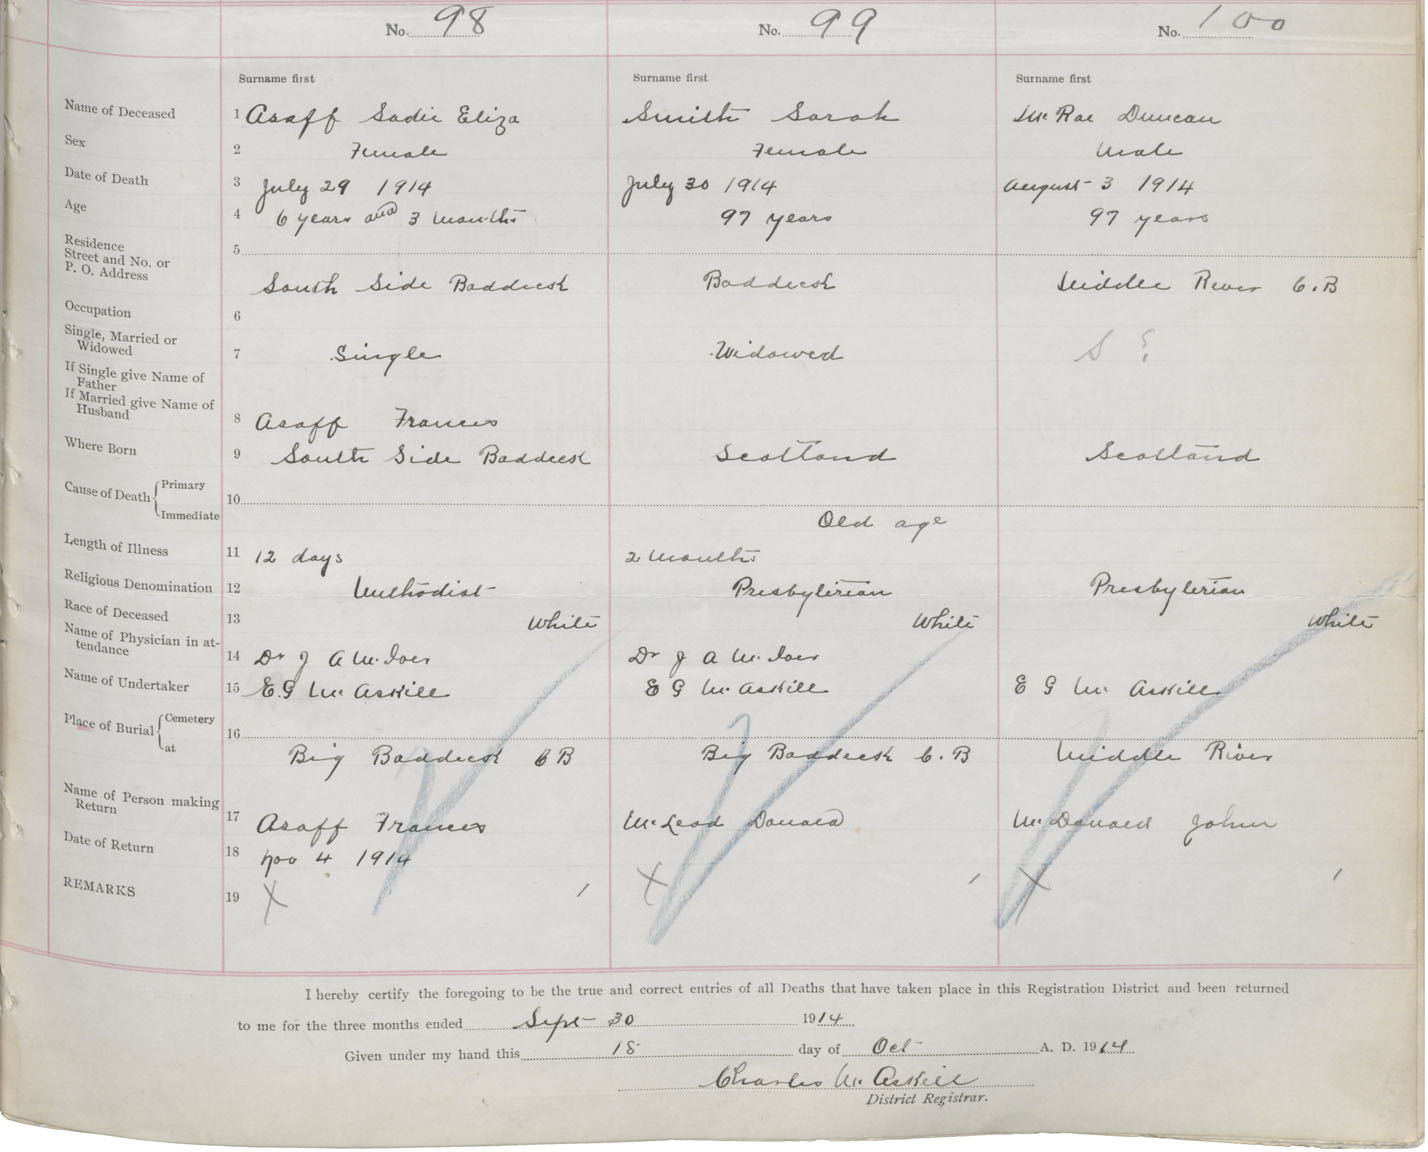 No. 98 No. 99 No. 100
Surname first Surname first Surname first
Name of Deceased 1 Asaff Sadie Eliza Smith Sarah McRae Duncan
Sex 2 Female Female Male
Date of Death 3 July 29 1914 July 30 1914 August 3 1914
Age 4 6 years and 3 months 97 years 97 years
Residence
Street and No. or 5
P. O. Address South Side Baddeck Baddeck Middle River C.B
Occupation 6
Single, Married or
Widowed 7 Single Widowed S ?
If Single give Name of
Father
If Married give Name of
Husband 8 Asaff Frances
Where Born 9 South Side Baddeck Scotland Scotland
Cause of Death Primary 10
Immediate Old age
Length of Illness 11 12 days 2 months
Religious Denomination 12 Methodist Presbyterian Presbyterian
Race of Deceased 13 White White White
Name of Physician in at-
tendance 14 Dr J A McIver Dr J A McIver
Name of Undertaker 15 E.G McAskill E G McAskill E G McAskill
Place of Burial Cemetery 16
at Big Baddeck C B Big Baddeck C.B Middle River
Name of Person making
Return 17 Asaff Frances McLeod Donald McDonald John
Date of Return 18 Nov 4 1914
REMARKS 19 X X X
I hereby certify the foregoing to be the true and correct entries of all Deaths that have taken place in this Registration District and been returned
to me for the three months ended Sept 30 1914
Given under my hand this 18 day of Oct A. D. 1914
Charles McAskill
District Registrar.